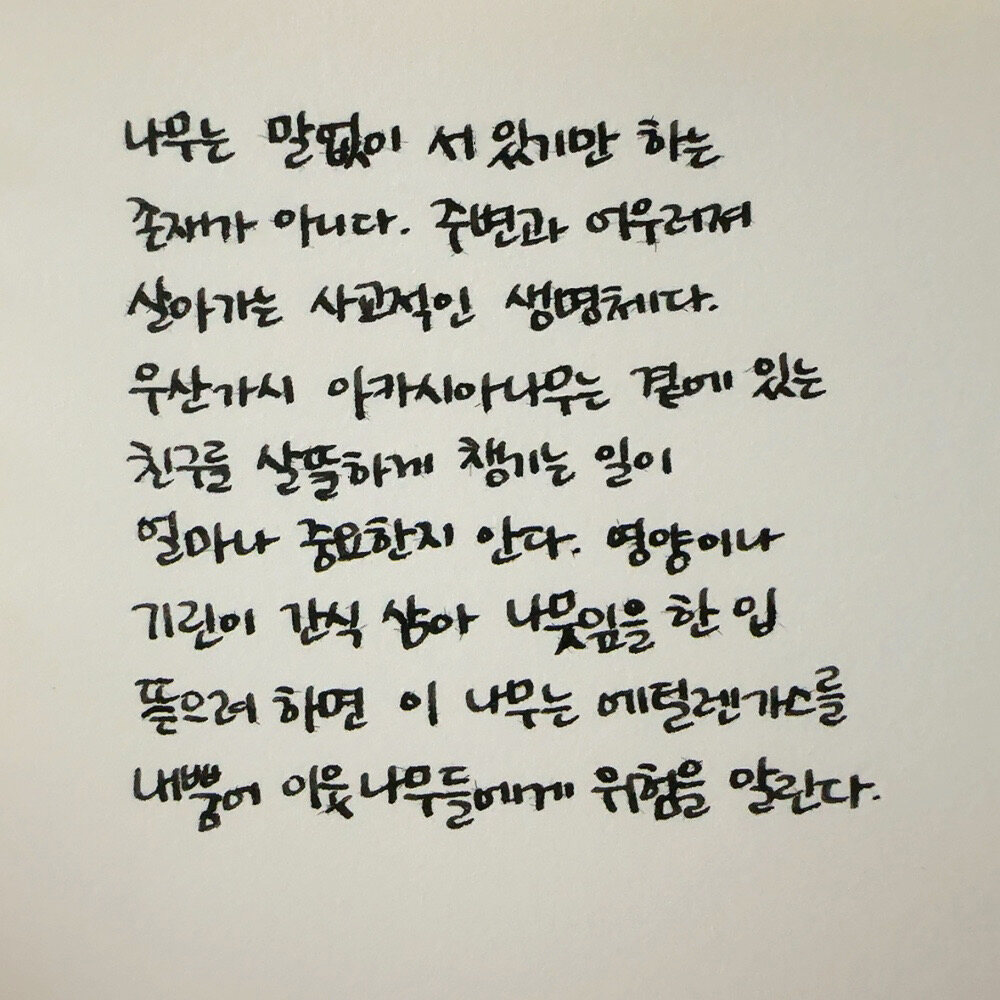 나무는 말없이 서 있기만 하는
존재가 아니다. 주변과 어우러져
살아가는 사교적인 생명체다.
우산가시 아카시아나무는 곁에 있는
친구를 살뜰하게 챙기는 일이
얼마나 중요한지 안다. 영양이나
기린이 간식 삼아 나뭇잎을 한 입
뜯으려 하면 이 나무는 에틸렌가스를
내뿜어 이웃나무들에게 위험을 알린다.